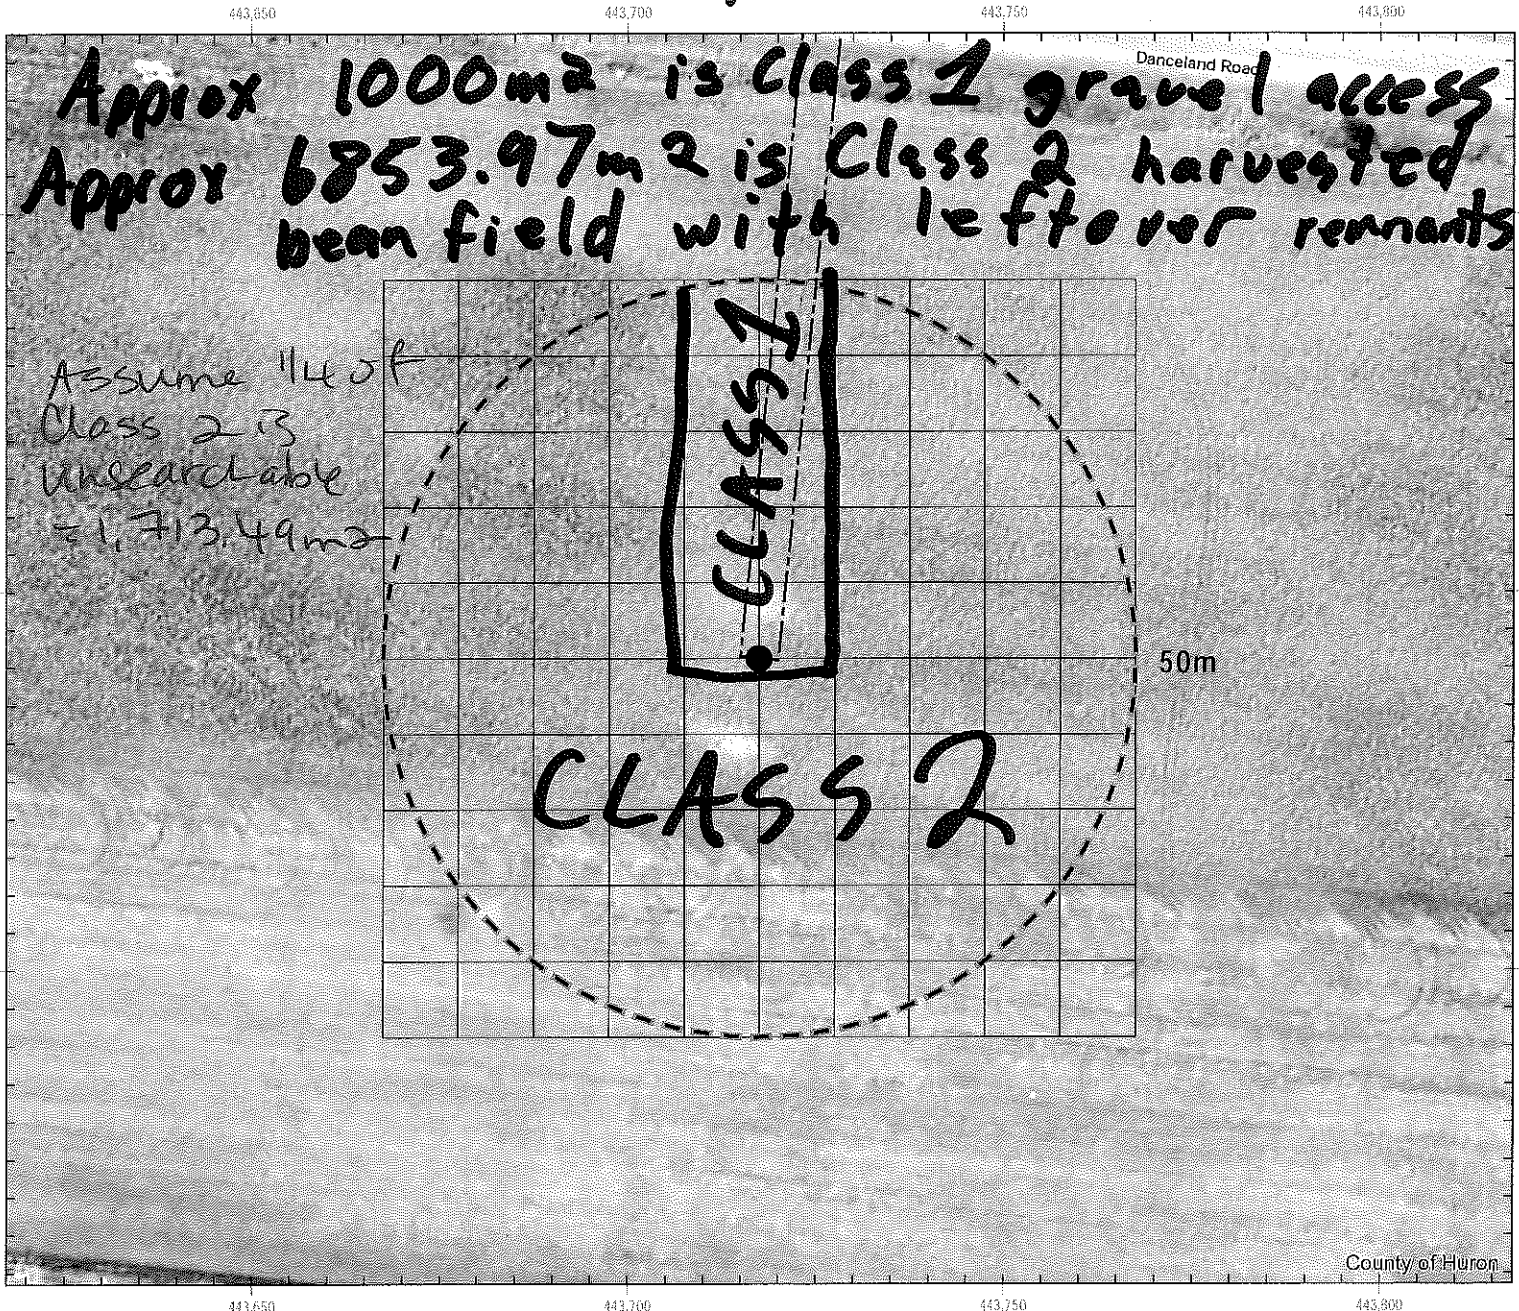 443,650 443,700 443,750 443,800
Danceland Road
Approx 1000m2 is Class 1 gravel access
Approx 6853.97m2 is Class 2 harvested
bean field with leftover remnants
Assume 1/4 of
Class 2 is
unsearchable
=1,713.49m2
CLASS 1
50m
CLASS 2
County of Huron
443,650 443,700 443,750 443,800